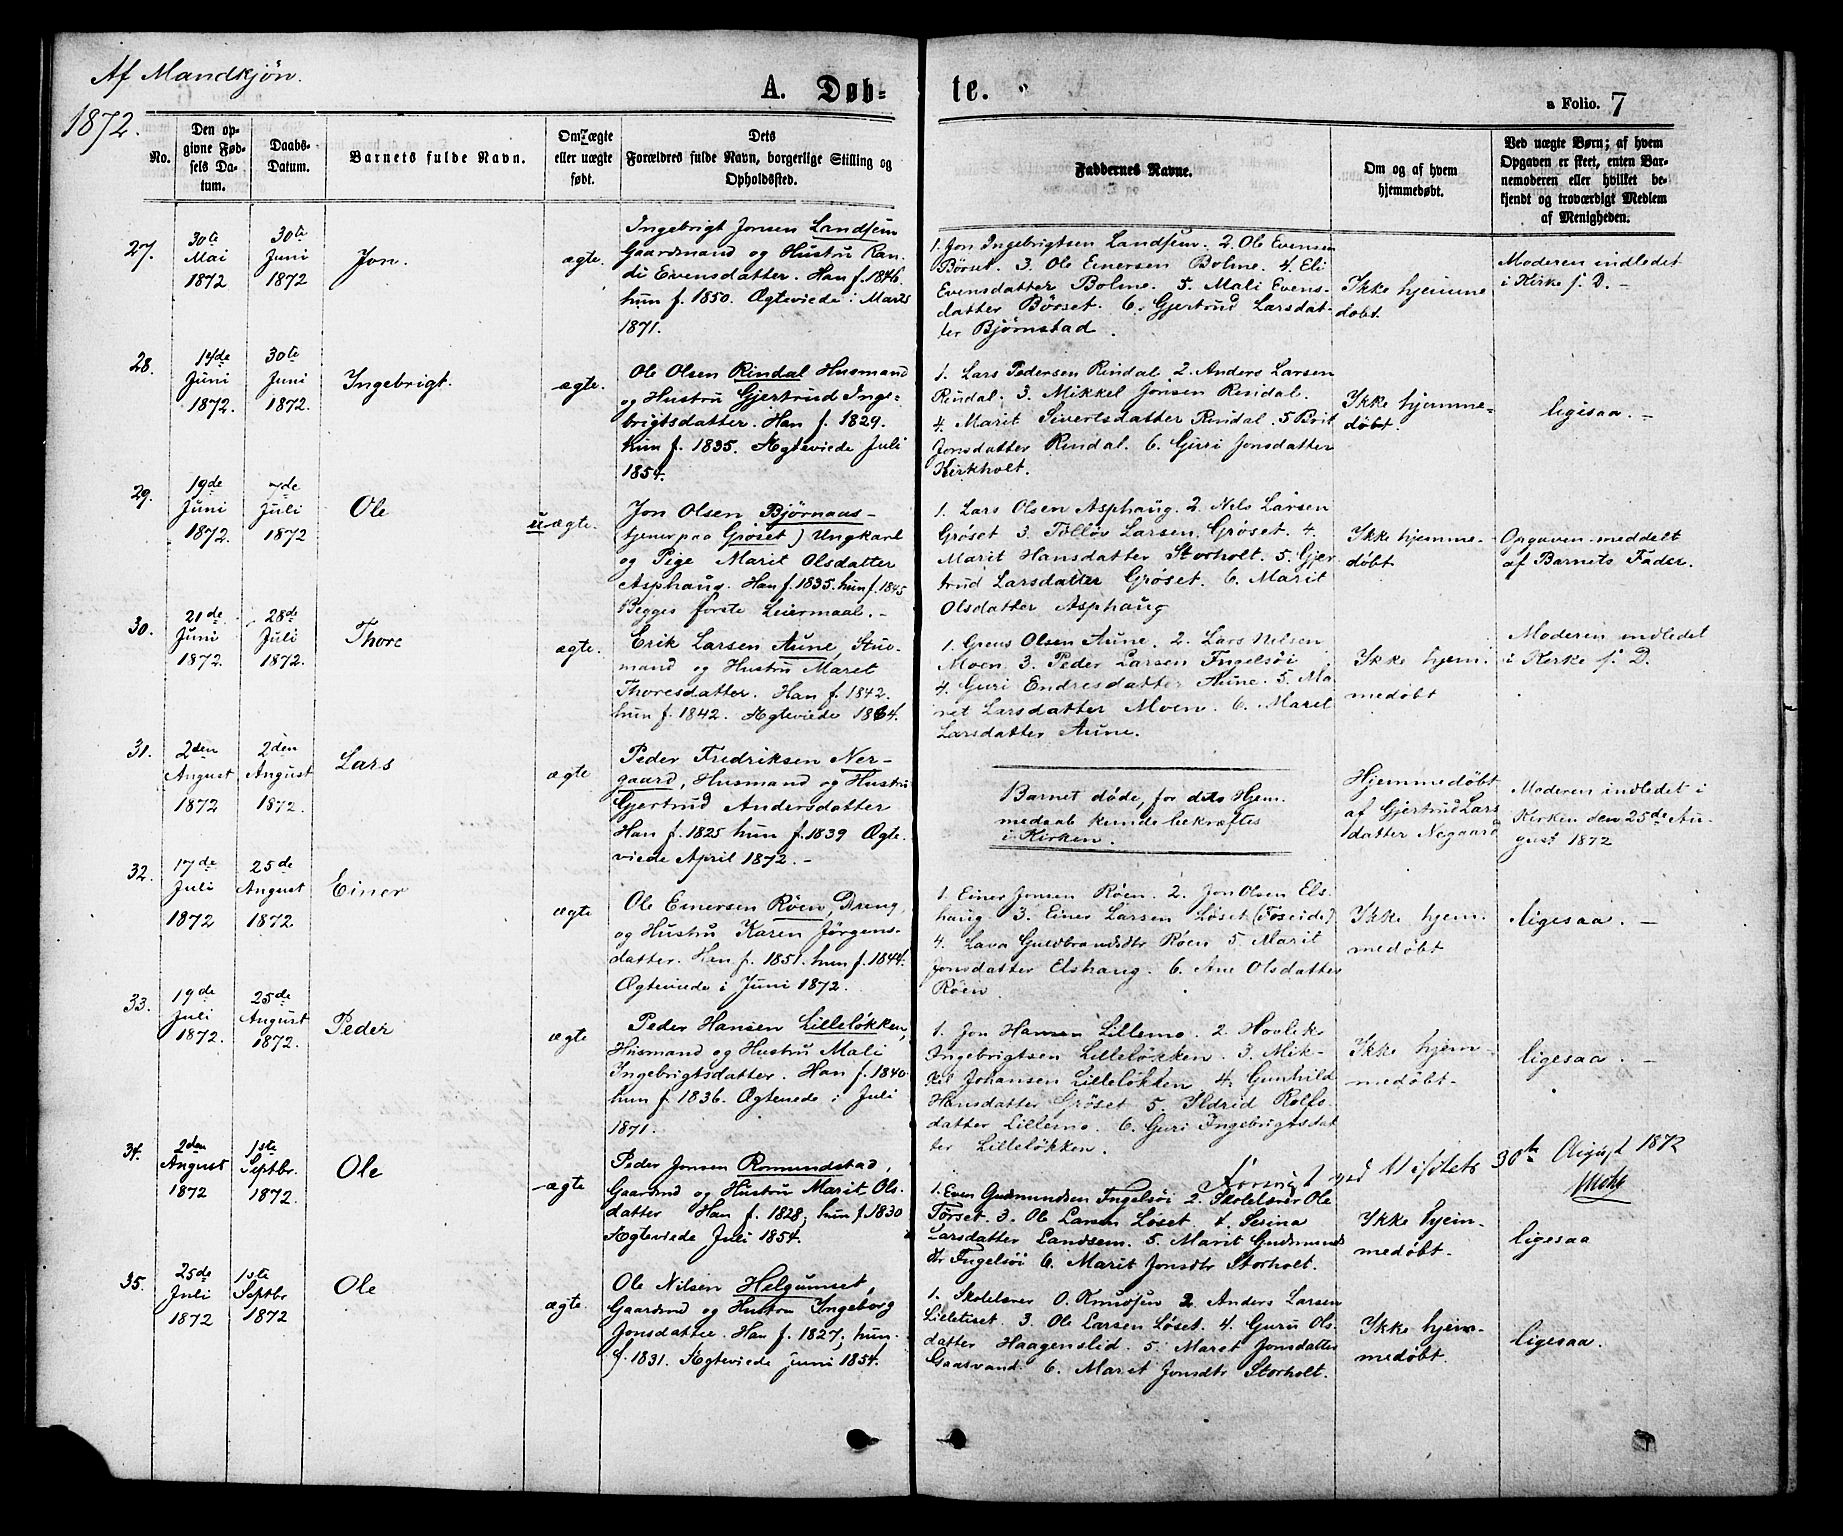 Af Mandkjøn.
1872.
A. Døb-
te.
a Folio. 7
No.
Den op-
givne Fød-
sels Da-
tum.
Daabs-
Datum.
Barnets fulde Navn.
Om ægte
eller uægte
født.
Dets
Forældres fulde Navn, borgerlige Stilling og
Opholdssted.
Faddernes Navne.
Om og af hvem
hjemmedøbt.
Ved uægte Børn; af hvem
Opgaven er skeet, enten Bar-
nemoderen eller hvilket be-
kjendt og troværdigt Medlem
af Menigheden.
27.
30te
Mai
1872
30te
Juni
1872
Jon.
ægte.
Ingebrigt Jonsen Landsem
Gaardmand og Hustru Ran-
di Evensdatter. Han f. 1846.
hun f. 1850. Ægteviede i Marts
1871.
1. Jon Ingebrigtsen Landsem. 2. Ole Evensen
Børset. 3. Ole Einersen Bolme. 4. Eli
Evensdatter Bolme. 5. Mali Evens-
datter Børset. 6. Gjertrud Larsdat-
ter Bjørnstad.
Ikke hjemme
døbt.
Moderen indledet
i Kirke s. D. -
28.
14de
Juni
1872.
30te
Juni
1872.
Ingebrigt.
ægte.
Ole Olsen Rindal Husmand
og Hustru Gjertrud Inge-
brigtsdatter. Han f. 1829.
hun f. 1835. Ægteviede Juli
1854.
1. Lars Pedersen Rindal 2. Anders Larsen
Rindal. 3. Mikkel Jonsen Rindal.
4. Marit Sivertsdatter Rindal. 5 Brit
Jonsdatter Rindal. 6. Guri Jonsdatter
Kirkholt.
Ikke hjemme-
døbt.
ligesaa. -
29.
19de
Juni
1872.
7de
Juli
1872
Ole
uægte.
Jon Olsen Bjørnaas-
(tjener paa Grøset) Ungkarl
og Pige Marit Olsdatter
Asphaug. Han f. 1835. hun f. 1845
Begges første Leiermaal. -
1. Lars Olsen Asphaug. 2. Nels Larsen
Grøset 3. Tølløv Larsen Grøset. 4.
Marit Hansdatter Storholt. 5. Gjer
trud Larsdatter Grøset. 6. Marit
Olsdatter Asphaug
Ikke hjemme-
døbt
Opgaven meddelt
af Barnets Fader.
30.
21de
Juni
1872.
28de
Juli
1872.
Thore
ægte.
Erik Larsen Aune, Huus-
mand og Hustru Maret
Thoresdatter. Han f. 1842.
hun f. 1842. Ægteviede 1864.
1. Olsen Aune. 2. Lars Nelsen
Moen. 3. Peder Larsen Fugelsøi
4. Guri Endresdatter Aune. 5. Ma-
ret Larsdatter Moen. 6. Maret
Larsdatter Aune.
Ikke hjem-
medøbt
Moderen indledet
i Kirke s. D.
31.
2den
August
1872
2den
August
1872.
Lars
ægte
Peder Fredriksen Ner-
gaard, Husmand og Hustru
Gjertrud Andersdatter
Han f. 1825 hun f. 1839 Ægte-
viede April 1872. -
Barnet døde, før dets Hjem-
medaab kunde bekræftes
i Kirken.
Hjemmedøbt
af Gjertrud Lars
datter Negaard
Moderen indledet i
Kirken den 25de Au-
gust 1872
32.
17de
Juli
1872
25de
August
1872
Einer
ægte
Ole Einersen Røen, Dreng,
og Hustru Karen Jørgens-
datter. Han f. 1851. hun f. 1844.
Ægteviede i Juni 1872.
1. Einer Jonsen Røen. 2. Jon Olsen Els-
haug 3. Einer Larsen Løset (Foseide)
4. Lava Guldbrandsdtr Røen 5. Marit
Jonsdatter Elshaug. 6. Ane Olsdatter
Røen
Ikke hjem-
medøbt
ligesaa. -
33.
19de
Juli
1872.
25de
August
1872.
Peder
ægte
Peder Hansen Lilleløkken,
Husmand og Hustru Mali
Ingebrigtsdatter. Han f. 1840.
hun f. 1836. Ægteviede i Juli
1871.
1. Jon Hansen Lillemo. 2. Hovlik
Ingebrigtsen Lilleløkken. 3. Mik-
kel Johansen Lilleløkken, 4. Gunhild
Hansdatter Grøset 5. Ildrid Rolfs-
datter Lillemo. 6. Guri Ingebrigtsdat
ter Lilleløkken.
Ikke hjem-
medøbt.
ligesaa. -
ved Visitats 30te August 1872
34.
2den
August
1872
1ste
Septbr.
1872.
Ole
ægte
Peder Jonsen Romundstad,
Gaardmd og Hustru Marit Ols-
datter Han f. 1828, hun f. 1830
Ægteviede Juli 1854.
1. Even Gudmundsen Fugelsøi 2. Skolelærer Ole
Tørset. 3. Ole Larsen Løset. 4. Serina
Larsdatter Landsem. 5. Marit Gudmunds
dtr Fugelsøi 6. Marit Jonsdtr Storholt.
Ikke hjem-
medøbt.
ligesaa
35.
25de
Juli
1872
1ste
Septbr
1872
Ole
ægte.
Ole Nilsen Helgumset,
Gaardmd og Hustru Ingeborg
Jonsdatter. Han f. 1827, hun
f. 1831. Ægteviede Juni 1854.
1. Skolelærer O. Knudsen 2. Anders Larsen
Lilletiset. 3 Ole Larsen Løset. 4. Guru Ols-
datter Haagenslid. 5. Maret Jonsdatter
Gaasvand. 6. Marit Jonsdtr Storholt.
Ikke hjem-
medøbt.
ligesaa.